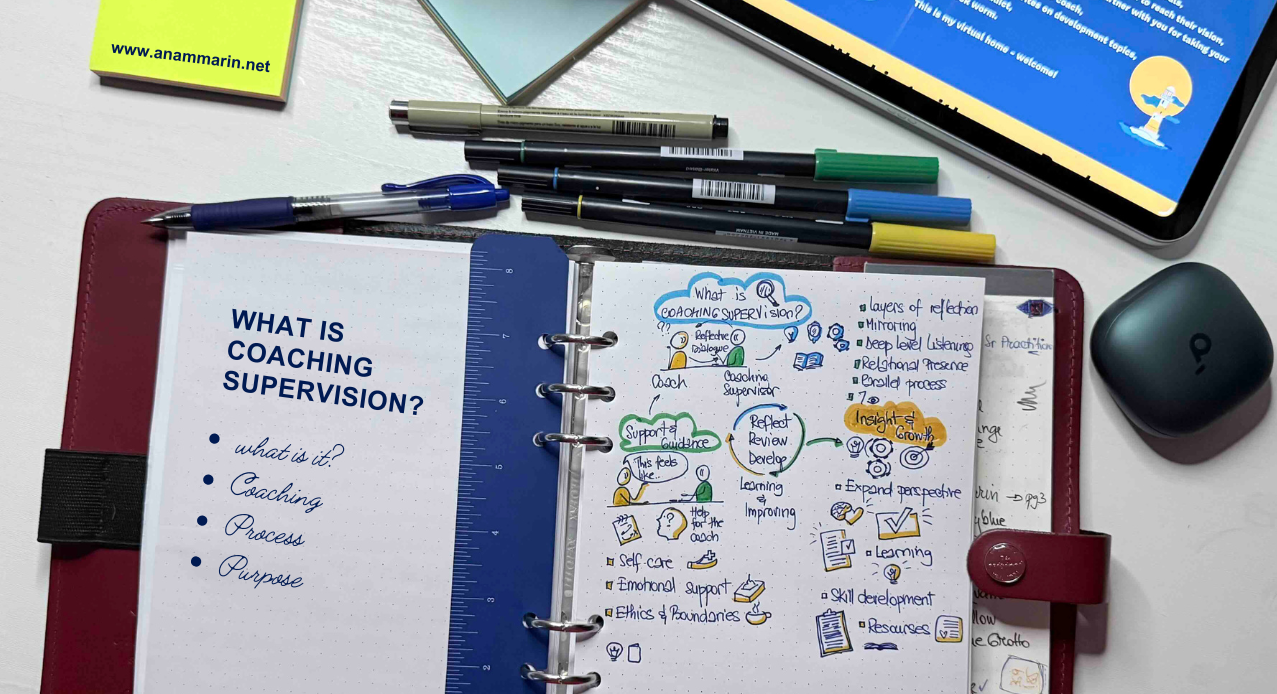 www.anammarin.net
to reach their vision,
rtner with you for taking your
coach,
tes on development topics,
k worm.
This is my virtual home - welcome!
MADE IN VIETNAM
WHAT IS
COACHING
SUPERVISION?
what is it?
Coaching
Process
Purpose
8
7
6
5
4
3
2
What is
COACHING SUPERVISION?
??
Reflective
Dialogue
Coach
Coaching
Supervisor
Layers of reflection
Mirroring
Deep level Listening
Relational Presence
Parallel process
7
Support &
Guidance
This feels
like..
Help
for the
coach
Self care
Emotional support
Ethics & Boundaries
Reflect
Review
Develop
Learning
&
Improving
Insight &
Growth
Expand perspective
Learning
Skill development
Resourses
Sr Practition
nge
rin → pg3
yblue
llow
e Grotto